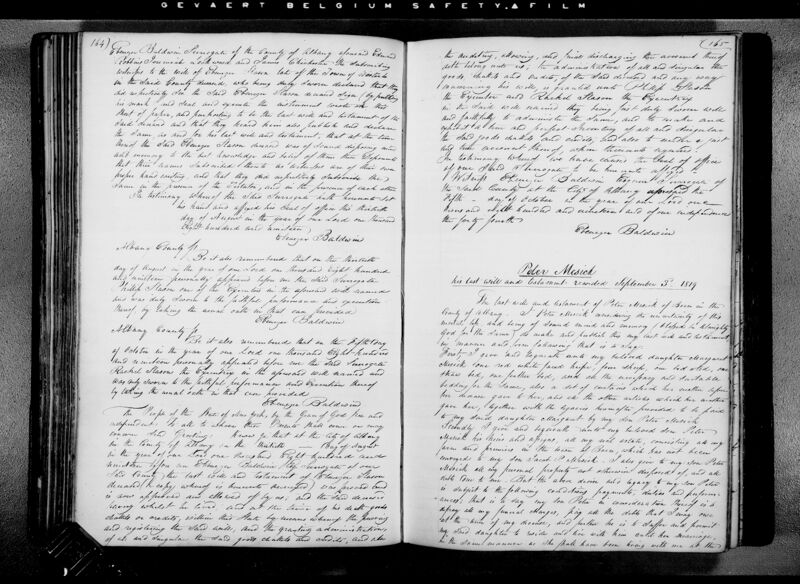 GEVAERT BELGIUM SAFETY FILM
164)
Ebenezer Baldwin Surrogate of the County of Albany
witnesses to the will of Ebenezer Slason late of the Town of
in the said County deceased, who being duly sworn declared that they
did respectively see the said Ebenezer Slason deceased sign (by putting
his mark) and seal and execute the instrument wrote on this
that of paper, and purporting to be the last will and testament of the
said deceased and that they heard him also publish and declare
the same as and for his last will and testament; that at the time
thereof the said Ebenezer Slason deceased was of sound disposing mind
and memory to the best knowledge and belief of them these deponents
that their names subscribed thereto as witnesses are of their own
proper hand writing, and that they did respectively subscribe the
same in the presence of the Testator, and in the presence of each other
In testimony whereof the said Surrogate hath hereunto set
his hand and affixed his seal of office this thirtieth
day of August in the year of our Lord one thousand
eight hundred and nineteen
Ebenezer Baldwin
Albany County ss
Be it also remembered that on the thirtieth
day of August in the year of our Lord one thousand eight hundred
and nineteen personally appeared before me the said Surrogate
Phillip Slason one of the Executors in the aforesaid will named
and was duly sworn to the faithful performance and execution
thereof by taking the usual oath in that case provided
Ebenezer Baldwin
Albany County ss
Be it also remembered that on the fifth day
of October in the year of our Lord one thousand Eight hundred
and nineteen personally appeared before me the said Surrogate
Rachel Slason the Executrix in the aforesaid will named and
was duly sworn to the faithful performance and Execution thereof
by taking the usual oath in that case provided
Ebenezer Baldwin
The People of the State of New York, by the Grace of God free and
independent: To all to whom these Presents shall come or may
concern Send Greeting: Know ye that at the city of Albany
in the County of Albany on the thirtieth day of August
in the year of our Lord one thousand Eight hundred and
nineteen before Ebenezer Baldwin Esq Surrogate of our
said County, the last will and testament of Ebenezer Slason
deceased (a copy whereof is hereunto annexed) was proved and
is now approved and allowed of by us; and the said deceased
having whilst he lived, and at the time of his death goods
chattels or credits, within this State by means whereof the proving
and registering the said will, and the granting administration
of all and singular the said goods chattels and credits, and also
(165
the auditing, allowing, and final discharging the account thereof
doth belong unto us, the administration of all and singular the
goods chattels and credits of the said deceased and any way
concerning his will is granted unto Phillip Slason
the Executor and Rachel Slason the Executrix
in the said will named they being first duly sworn well
and faithfully to administer the same, and to make and
exhibit a true and perfect Inventory of all and singular
the said goods chattels and credits, and also to render a just
and true account thereof when thereunto required
In testimony whereof we have caused the Seal of office
of our said Surrogate to be hereunto affixed
Witness Ebenezer Baldwin Esquire Surrogate of
the said County at the City of Albany aforesaid the
fifth day of October in the year of our Lord one
thousand eight hundred and nineteen and of our independence
the forty fourth
Ebenezer Baldwin
Peter Mesick
his last will and testament recorded September 3d. 1819
The last will and testament of Peter Mesick of Bern in the
County of Albany. I Peter Mesick considering the uncertainty of this
mortal life and being of sound mind and memory (blessed be Almighty
God for the same) do make and publish this my last will and testament
in manner and form following that is to say
First, I give and bequeath unto my beloved daughter Margaret
Mesick one red white faced heifer, four sheep, one bedsted, one
bed, one feather bed, and all the necessary and suitable
bedding for the same, also a set of curtains which her mother before
her decease gave to her, and all the other articles which her mother
gave her, together with the legacies hereinafter provided to be paid
to my said daughter Margaret by my son Peter Mesick
Secondly I give and bequeath unto my beloved son Peter
Mesick his heirs and assigns all my real estate, consisting of my
farm and premises in the town of Bern, which has not been
conveyed to my son Jacob P. Mesick. I also give to my son Peter
Mesick all my personal property not otherwise disposed of and all
debts due to me. But the above devise and legacy to my son Peter
is subject to the following conditions payments, duties and
that is to say my son Peter in consideration thereof is to
defray all my funeral charges, pay all the debts that I may owe
at the time of my decease, and further he is to suffer and permit
my said daughter to reside and live with him until her marriage,
in the same manner as she shall have been living with me at the